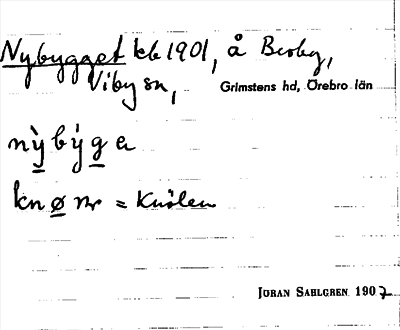 Nybygget kb 1901, å Berby,
Viby sn, Grimstens hd, Örebro län
nỳbýge
knønr = Knölen
JÖRAN SAHLGREN 1907